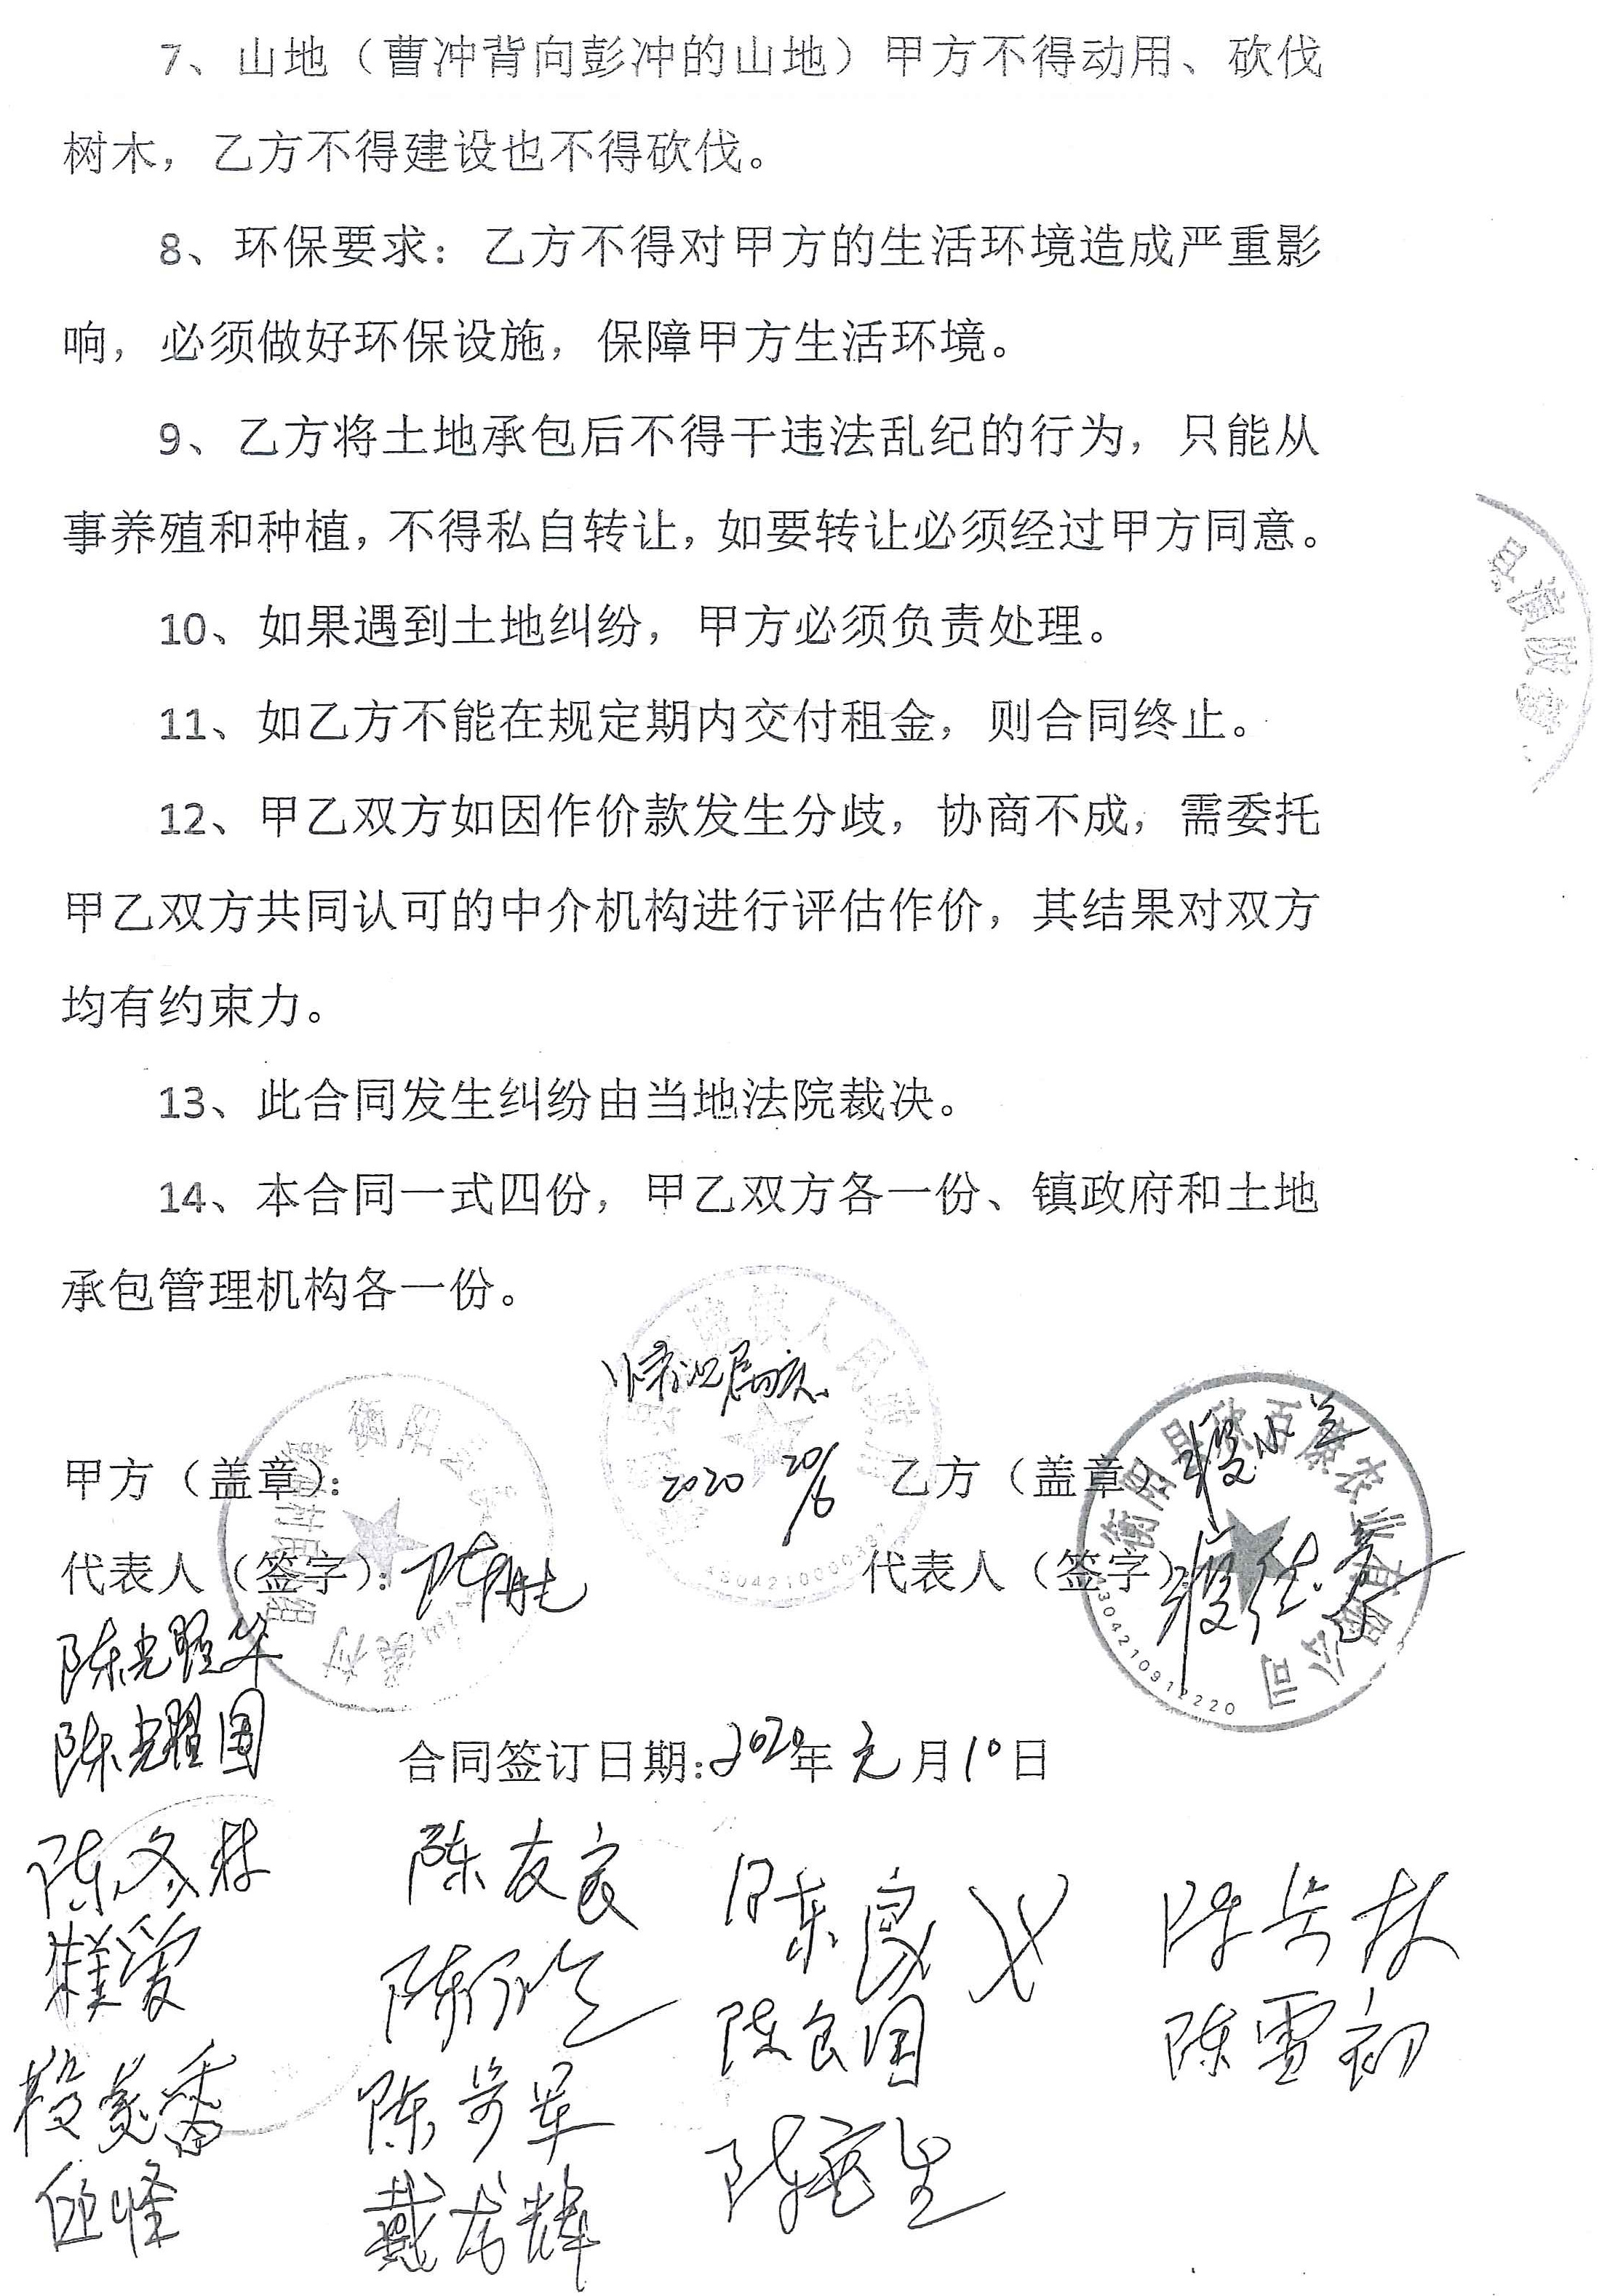 7、山地（曹冲背向彭冲的山地）甲方不得动用、砍伐
树木，乙方不得建设也不得砍伐。
8、环保要求：乙方不得对甲方的生活环境造成严重影
响，必须做好环保设施，保障甲方生活环境。
9、乙方将土地承包后不得干违法乱纪的行为，只能从
事养殖和种植，不得私自转让，如要转让必须经过甲方同意。
10、如果遇到土地纠纷，甲方必须负责处理。
11、如乙方不能在规定期内交付租金，则合同终止。
12、甲乙双方如因作价款发生分歧，协商不成，需委托
甲乙双方共同认可的中介机构进行评估作价，其结果对双方
均有约束力。
13、此合同发生纠纷由当地法院裁决。
14、本合同一式四份，甲乙双方各一份、镇政府和土地
承包管理机构各一份。
甲方（盖章）：
2020 20/6
乙方（盖章）
代表人（签字）：陈
代表人（签字）
衡阳县 百康农业有限公司
陈光耀华
陈光耀国
合同签订日期：2020年元月10日
陈冬林 陈友良 陈良 陈 林
陈
陈良国 陈雪初
段美香 陈 军
陈 生
戴龙辉